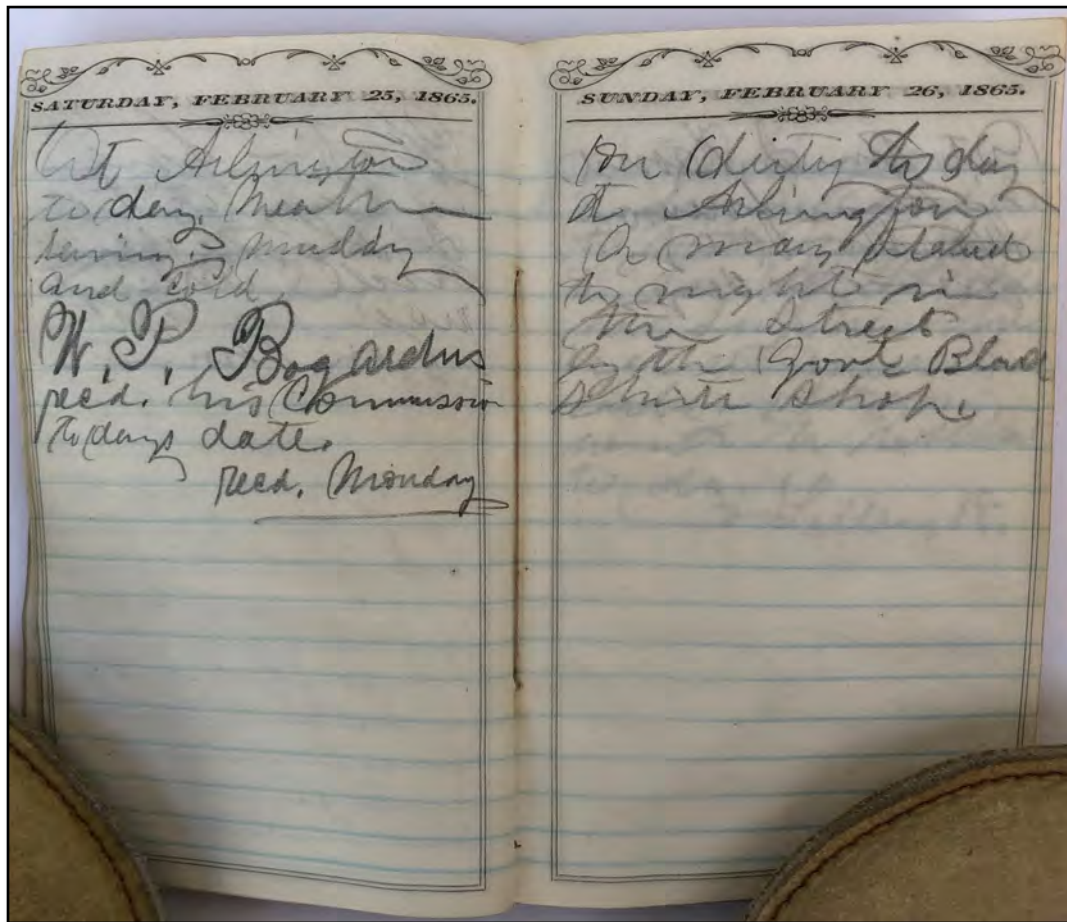 SATURDAY, FEBRUARY 25, 1865.
At Arlington
to day. Weather
rainy, muddy
and cold.
W. P. Bogardus
recd. his Commission
to days date.
recd. Monday
SUNDAY, FEBRUARY 26, 1865.
On duty to day
at Arlington
A man
to night in
the Street
by the Govt Black
Smith Shop.